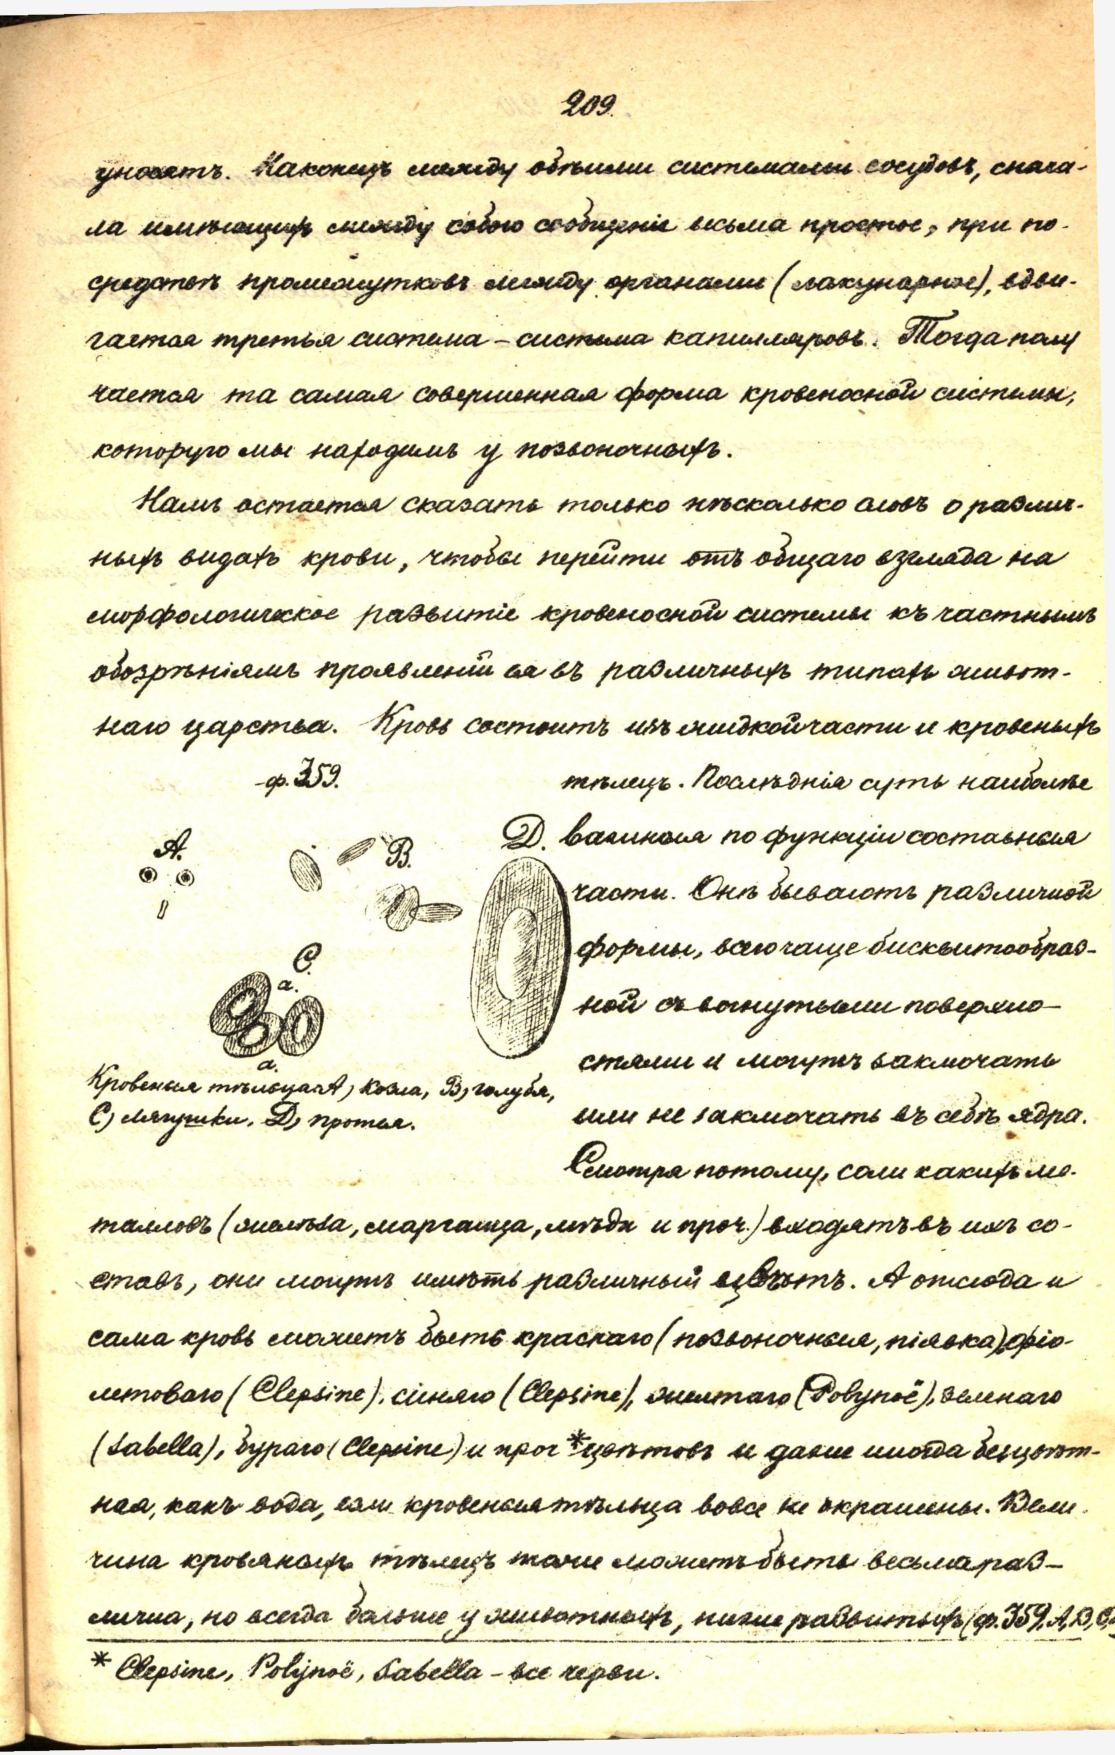 209.
уносятъ. Наконецъ между обѣими системами сосудовъ, снача-
ла имѣющихъ между собою сообщеніе весьма простое, при по-
средствѣ промежутковъ между органами (лакунарное), вдви-
гается третья система – система капилляровъ. Тогда полу
чается та самая совершенная форма кровеносной системы,
которую мы находимъ у позвоночныхъ.
Намъ остается сказать только нѣсколько словъ о различ-
ныхъ видахъ крови, чтобы перейти отъ общаго взгляда на
морфологическое развитіе кровеносной системы къ частнымъ
обозрѣніямъ проявленій ея въ различныхъ типахъ живот-
наго царства. Кровь состоитъ изъ жидкой части и кровеныхъ
ф. 359.
тѣлецъ. Послѣднія суть наиболѣе
важныя по функціи составныя
части. Онѣ бываютъ различной
формы, всего чаще бисквитообраз-
ной съ вогнутыми поверхно-
стями и могутъ заключать
или не заключать въ себѣ ядра.
Смотря потому, соли какихъ ме-
A.
B.
C.
a.
a.
D.
Кровеныя тѣльца A) козла, B) голубя,
C) лягушки, D) протея.
талловъ (желѣза, марганца, мѣди и проч.) входятъ въ ихъ со-
ставъ, они могутъ имѣть различный цвѣтъ. А отсюда и
сама кровь можетъ быть краснаго (позвоночныя, піявка), фіо-
летоваго (Clepsine), синяго (Clepsine), желтаго (Polynoë), зеленаго
(Sabella), бураго (Clepsine) и проч * цвѣтовъ и даже иногда безцвѣт-
ная, какъ вода, если кровеныя тѣльца вовсе не окрашены. Вели
чина кровяныхъ тѣлецъ тоже можетъ быть весьма раз-
лична, но всегда больше у животныхъ, ниже развитыхъ (ф. 359, A, B, C,
* Clepsine, Polynoë, Sabella – все черви.